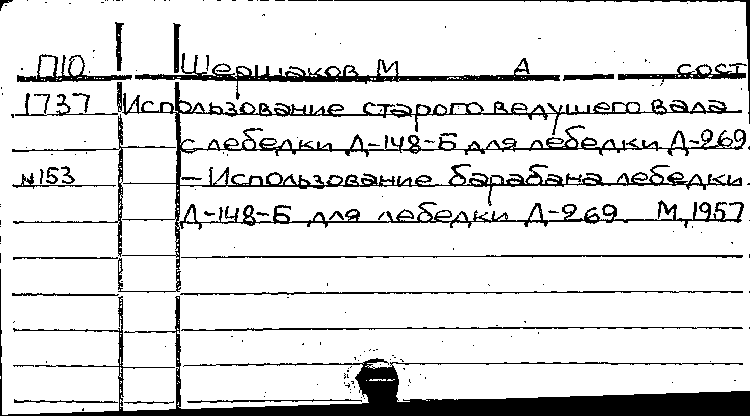 П10 Шершаков, М А сост
1737 Использование старого ведущего вала
с лебедки Д-148-Б для лебедки Д-269.
№153 — Использование барабана лебедки
Д-148-Б для лебедки Д-269. М, 1957